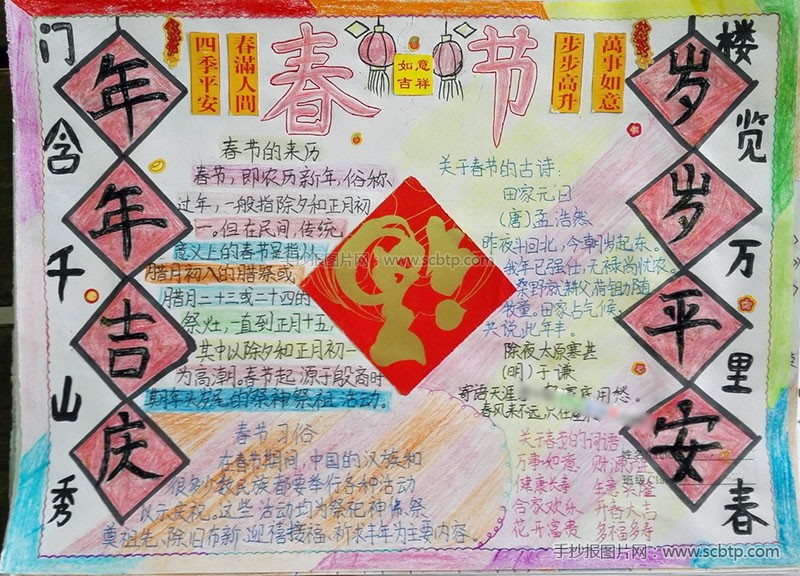 春节
四季平安
春滿人間
如意
吉祥
步步高升
萬事如意
门含千山秀
楼览万里春
年年吉庆
岁岁平安
春节的来历
春节,即农历新年,俗称
过年,一般指除夕和正月初
一。但在民间,传统
意义上的春节是指从
腊月初八的腊祭或
腊月二十三或二十四的
祭灶,一直到正月十五,
其中以除夕和正月初一
为高潮。春节起源于殷商时
期年头岁尾的祭神祭祖活动。
春节习俗
在春节期间,中国的汉族和
很多少数民族都要举行各种活动
以示庆祝。这些活动均为祭祀神佛、祭
奠祖先、除旧布新、迎禧接福、祈求丰年为主要内容。
关于春节的古诗:
田家元日
(唐)孟浩然
昨夜斗回北,今朝岁起东。
我年已强仕,无禄尚忧农。
桑野就耕父,荷锄随
牧童。田家占气候,
共说此年丰。
除夜太原寒甚
(明)于谦
寄语天涯 底用愁。
春风来不远,只在屋
关于春节的词语
万事如意 财源
健康长寿 生意兴隆
合家欢乐 开春大吉
花开富贵 多福多寿
姓名
班级
手抄报图片网:www.scbtp.com
手抄报图片网:www.scbtp.com